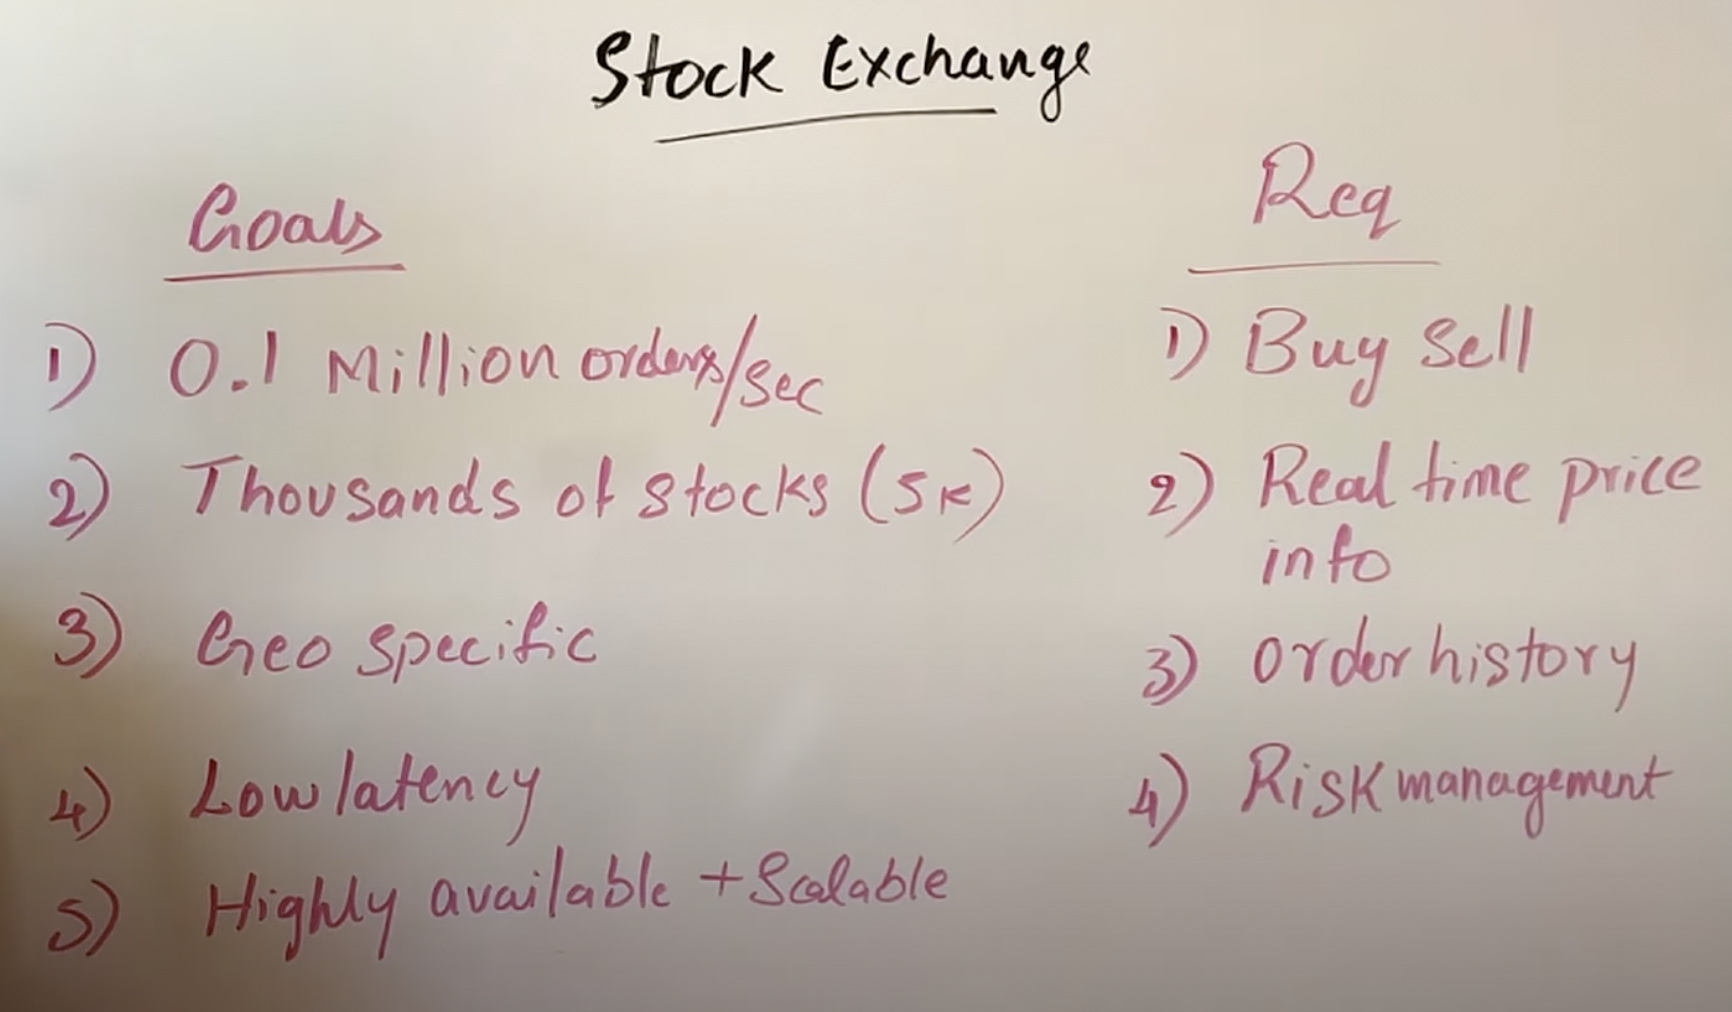 Stock Exchange
Goals
1) 0.1 Million orders/sec
2) Thousands of stocks (5K)
3) Geo specific
4) Low latency
5) Highly available + Scalable
Req
1) Buy Sell
2) Real time price
info
3) order history
4) Risk management